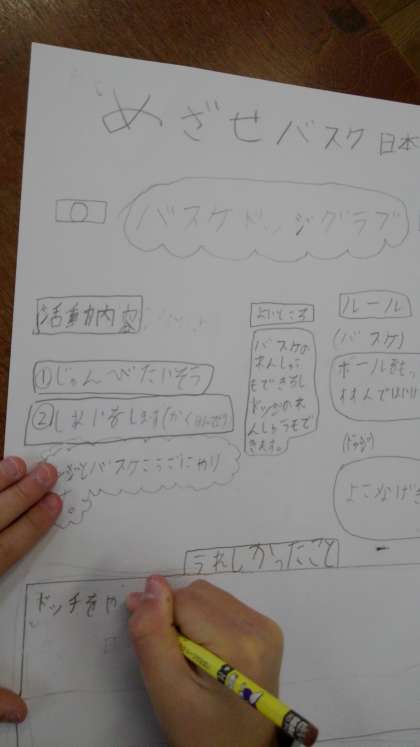 めざせバスケ 日本
バスケドッジクラブ
活動内容
①じゅんびたいそう
②しあいをします(かく
よいところ
バスケの
れんしゅう
もできるし
ドッジのれ
んしゅうもで
きます。
ルール
(バスケ)
ボールをもっ
(ドッジ)
よこなげき
バスケこうごにやり
うれしかったこと
ドッチをや